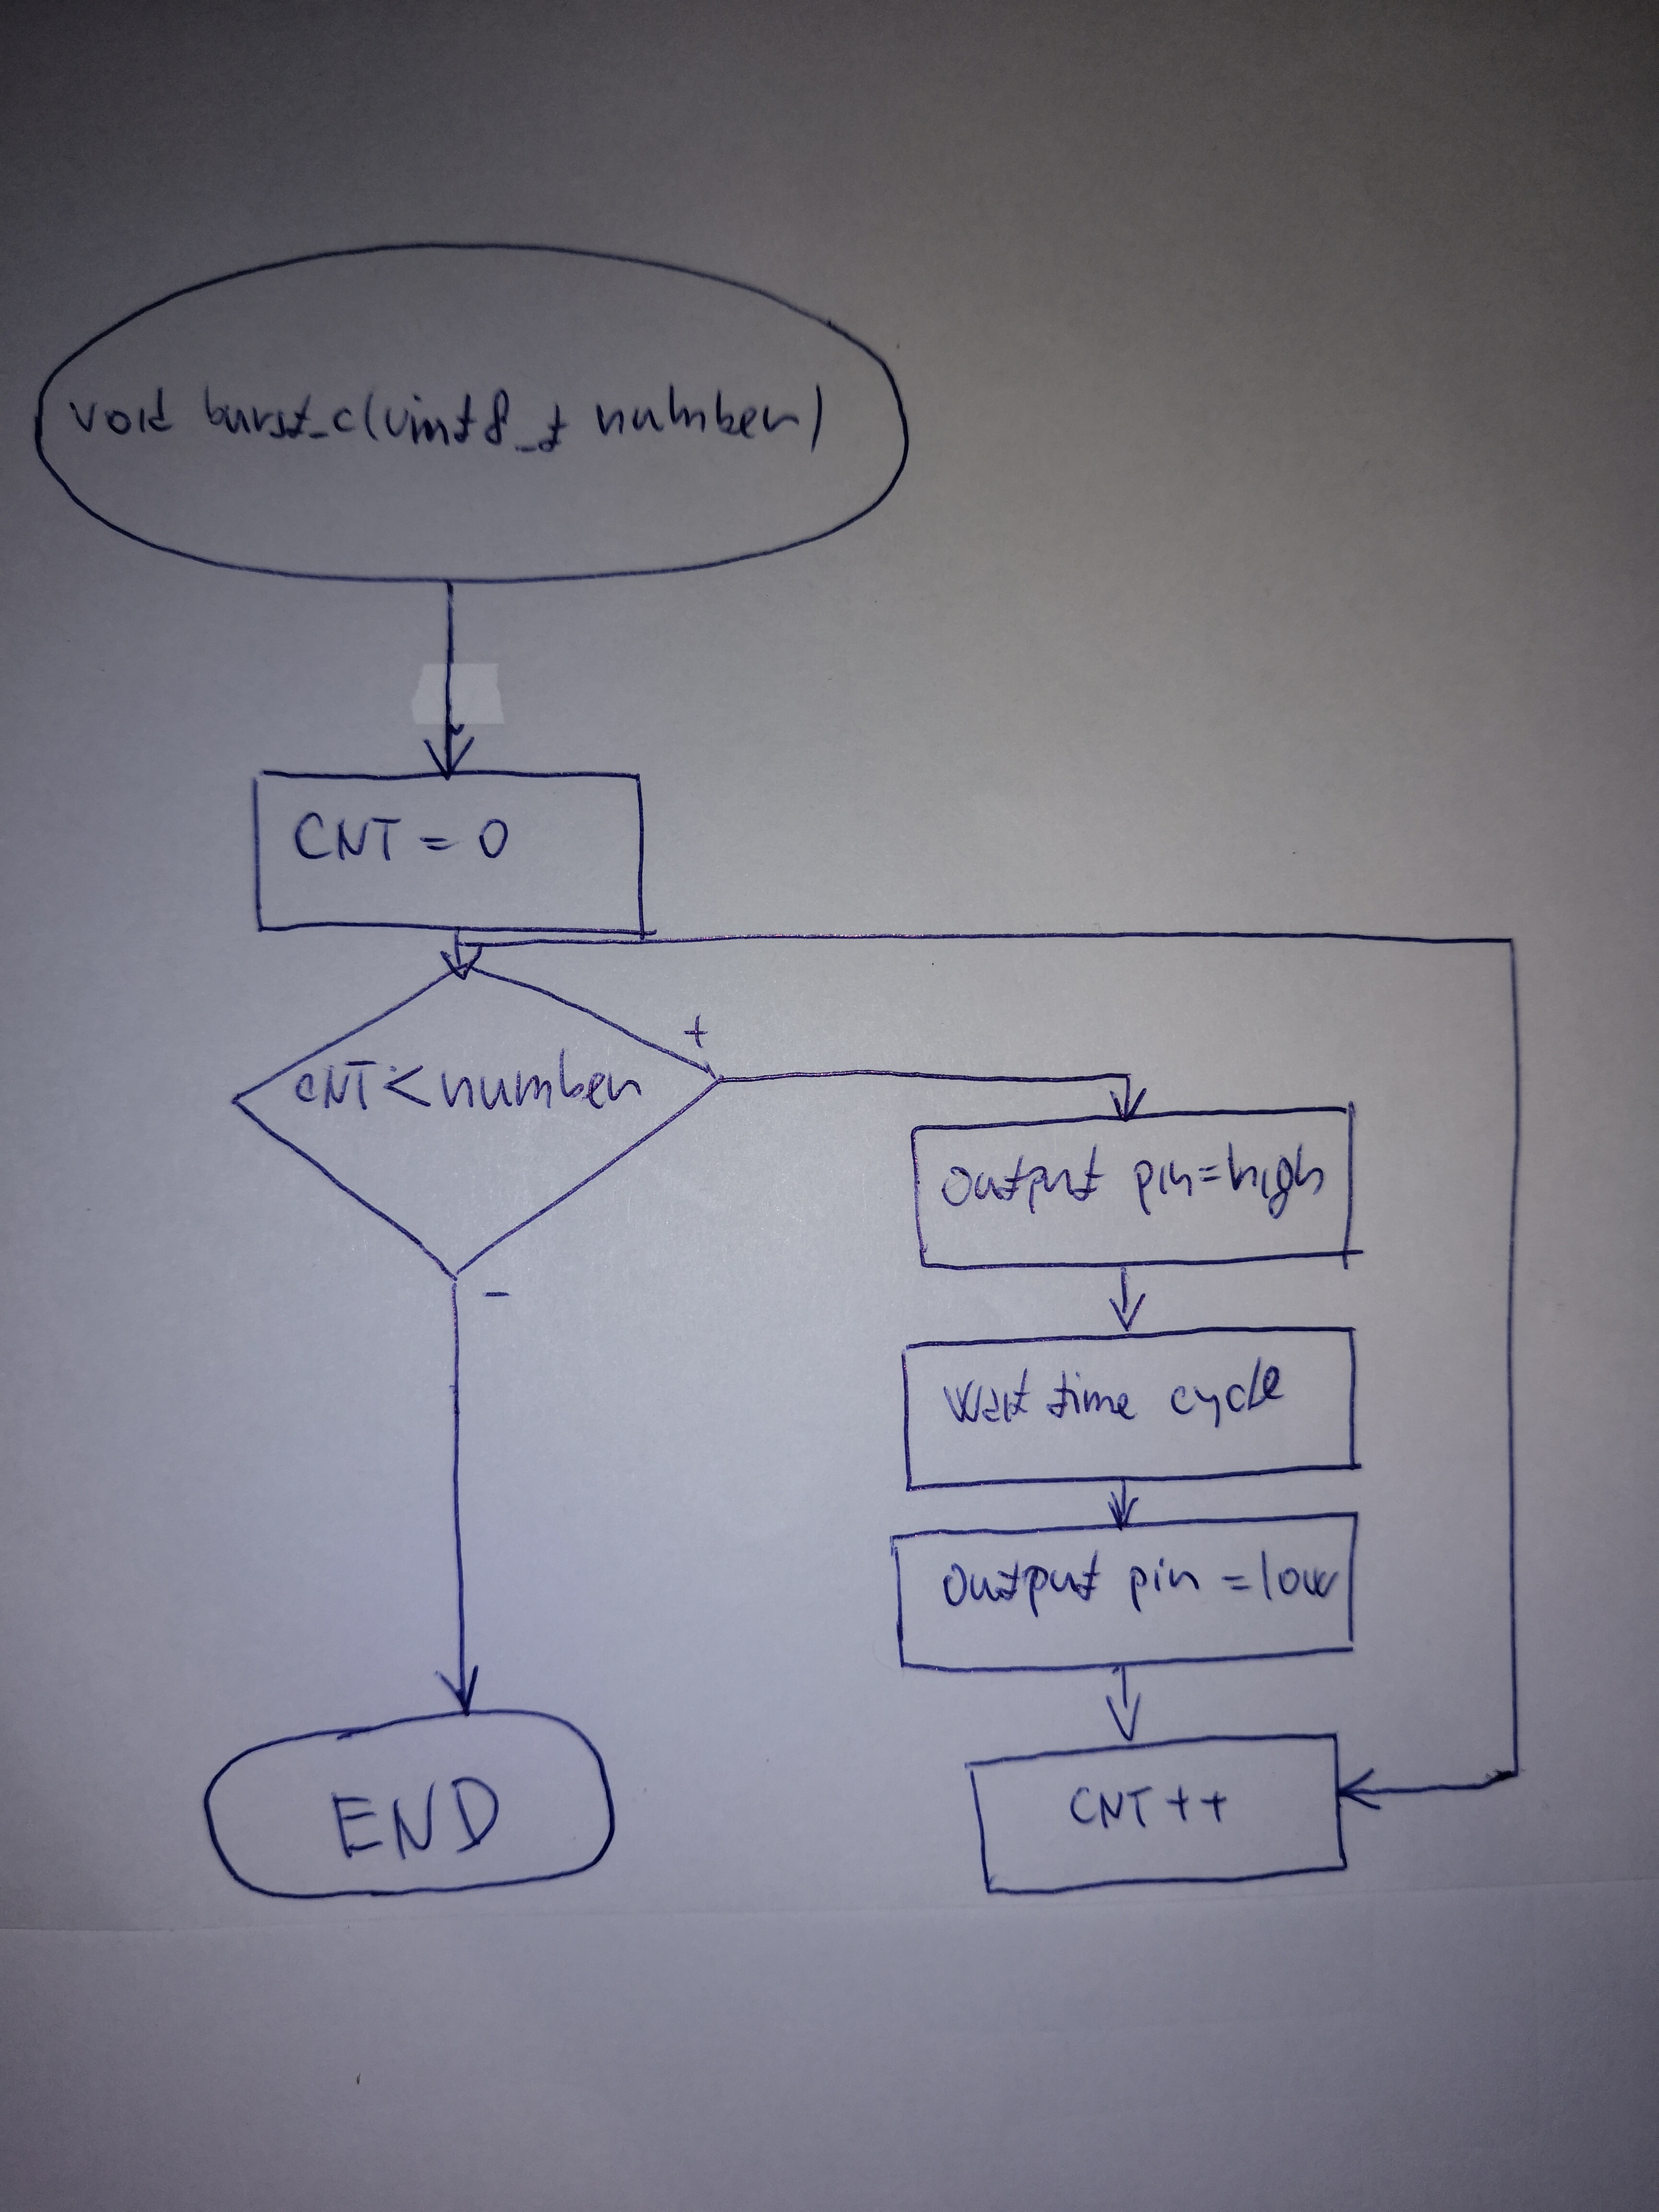 void burst_c(uint8_t number)
CNT = 0
CNT < number
+
-
Output pin=high
Wait time cycle
Output pin =low
CNT ++
END